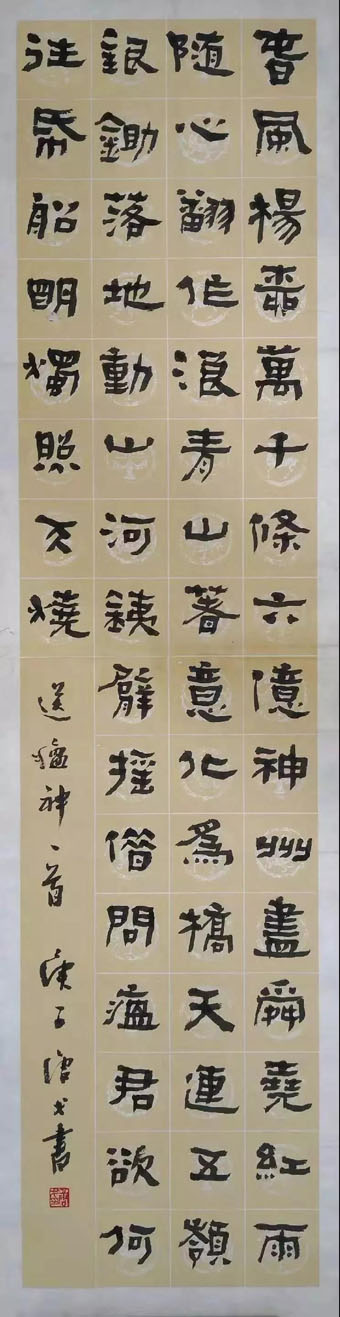 春風楊柳萬千條六億神州盡舜堯紅雨
随心翻作浪青山著意化爲橋天連五嶺
銀鋤落地動山河銕臂摇借問瘟君欲何
往帋船明燭照天燒
送瘟神一首 庚子 書